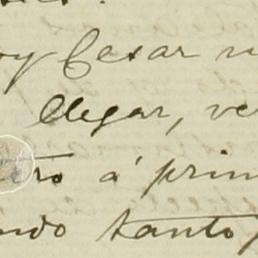 oy Cesar
llegar, ve
ro á prim
ndo tanto